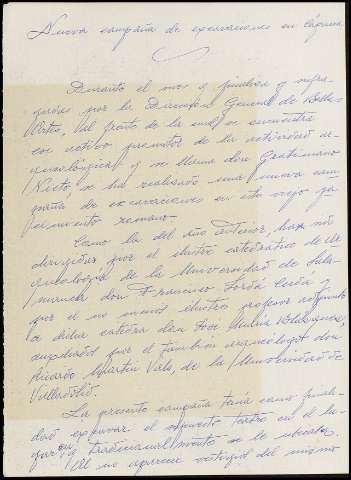 Nueva campaña de excavaciones en Cáparra
Durante el mes q finaliza y sufra-
gadas por la Dirección General de Bellas
Artes, al frente de la cual se encuentra
ese activo promotor de la actividad ar-
queológica q se llama don Gratiniano
Nieto, se ha realizado una nueva cam-
paña de excavaciones en este viejo ya-
cimiento romano.
Como la del año anterior, han sido
dirigidas por el ilustre catedrático de Ar-
queología de la Universidad de Sala-
manca don Francisco Jordá Cerdá y
por el no menos ilustre profesor adjunto
a dicha cátedra don José María Blázquez,
ayudados por el también arqueólogo don
Ricardo Martín Valls, de la Universidad de
Valladolid.
La presente campaña tenía como finali-
dad excavar el supuesto teatro en el lu-
gar en q tradicionalmente se le ubicaba.
Al no aparecer vestigios del mismo